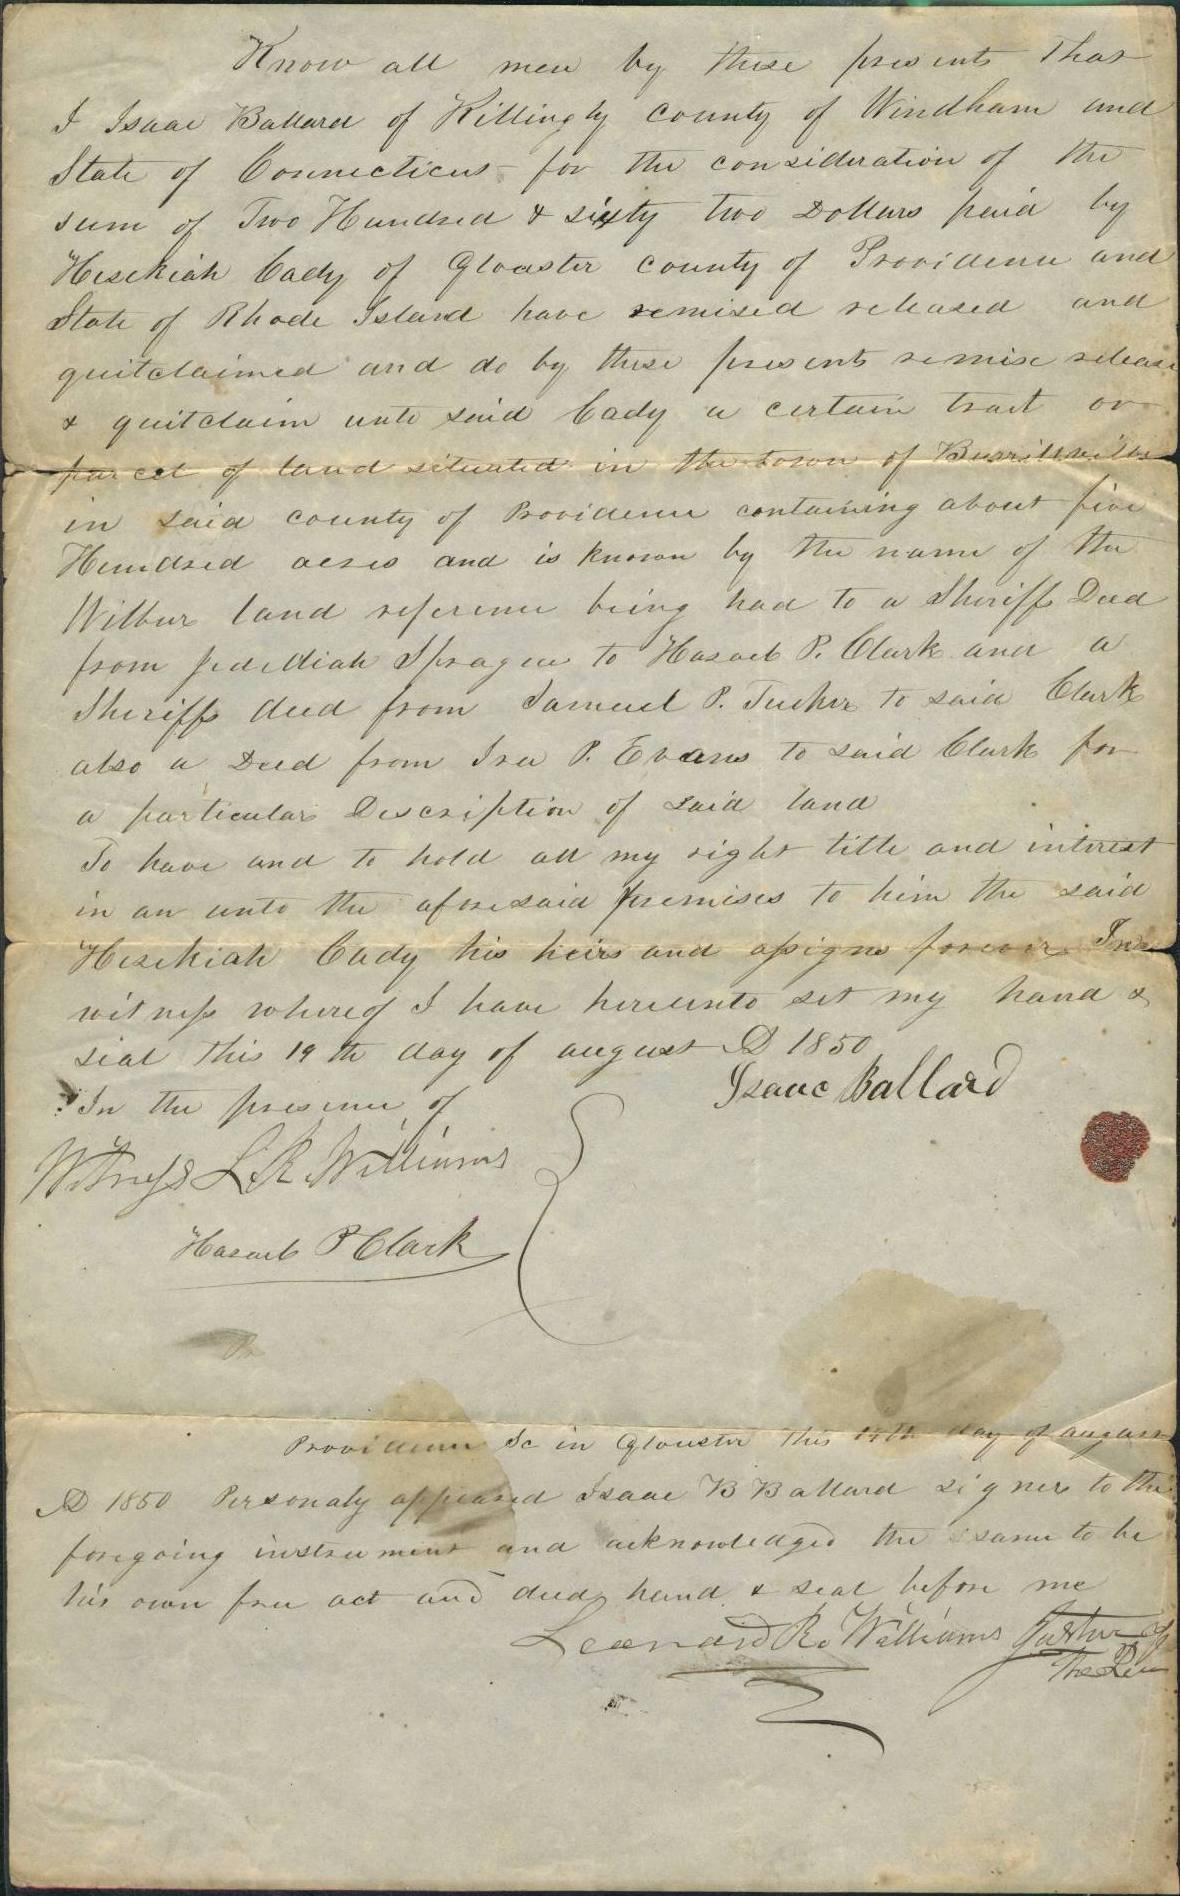 Know all men by these presents That
I Isaac Ballard of Killingly county of Windham and
State of Connecticut for the consideration of the
sum of Two Hundred & sixty two Dollars paid by
Hesekiah Cady of Glocster county of Providence and
State of Rhode Island have remised released and
quitclaimed and do by these presents remise release
& quitclaim unto said Cady a certain tract or
parcel of land situated in the town of Burrillville
in said county of Providence containing about five
Hundred acres and is known by the name of the
Wilbur land reference being had to a Sheriffs Deed
from Jedediah Sprague to Hasael P. Clark and a
Sheriffs deed from Samuel P. Tucker to said Clark
also a Deed from Ira P. Evans to said Clark for
a particular Description of said land
To have and to hold all my right title and interest
in an unto the aforesaid premises to him the said
Hesekiah Cady his heirs and assigns forever In
witness whereof I have hereunto set my hand &
seal this 19th day of august AD 1850
Isaac Ballard
In the presence of
Witness L R. Williams
Hasael P Clark
Providence Sc in Glouster this 19th day of august
AD 1850 Personaly appeared Isaac B Ballard signer to the
foregoing instrument and acknowledged the same to be
his own free act and deed hand & seal before me
Leonard R. Williams Justice of
the